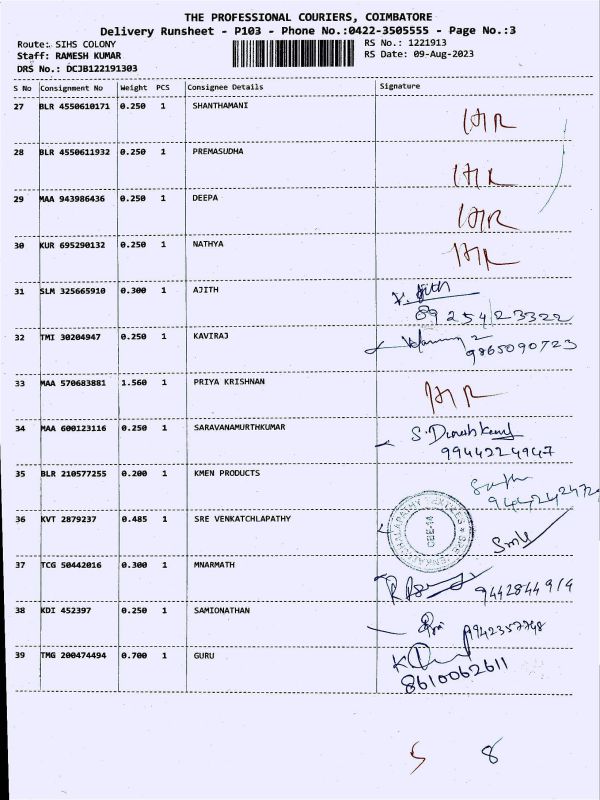 THE PROFESSIONAL COURIERS, COIMBATORE
Delivery Runsheet - P103 - Phone No.:0422-3505555 - Page No.:3
Route: SIHS COLONY RS No.: 1221913
Staff: RAMESH KUMAR RS Date: 09-Aug-2023
DRS No.: DCJB122191303
S No Consignment No Weight PCS Consignee Details Signature
27 BLR 4550610171 0.250 1 SHANTHAMANI
28 BLR 4550611932 0.250 1 PREMASUDHA
29 MAA 943986436 0.250 1 DEEPA
30 KUR 695290132 0.250 1 NATHYA
31 SLM 325665910 0.300 1 AJITH
8925423322
32 TMI 30204947 0.250 1 KAVIRAJ
9865090723
33 MAA 570683881 1.560 1 PRIYA KRISHNAN
34 MAA 600123116 0.250 1 SARAVANAMURTHKUMAR
9944224947
35 BLR 210577255 0.200 1 KMEN PRODUCTS
36 KVT 2879237 0.485 1 SRE VENKATCHLAPATHY
CBE-14
37 TCG 50442016 0.300 1 MNARMATH
9442844919
38 KDI 452397 0.250 1 SAMIONATHAN
9942357748
39 TMG 200474494 0.700 1 GURU
8610062611
5 8